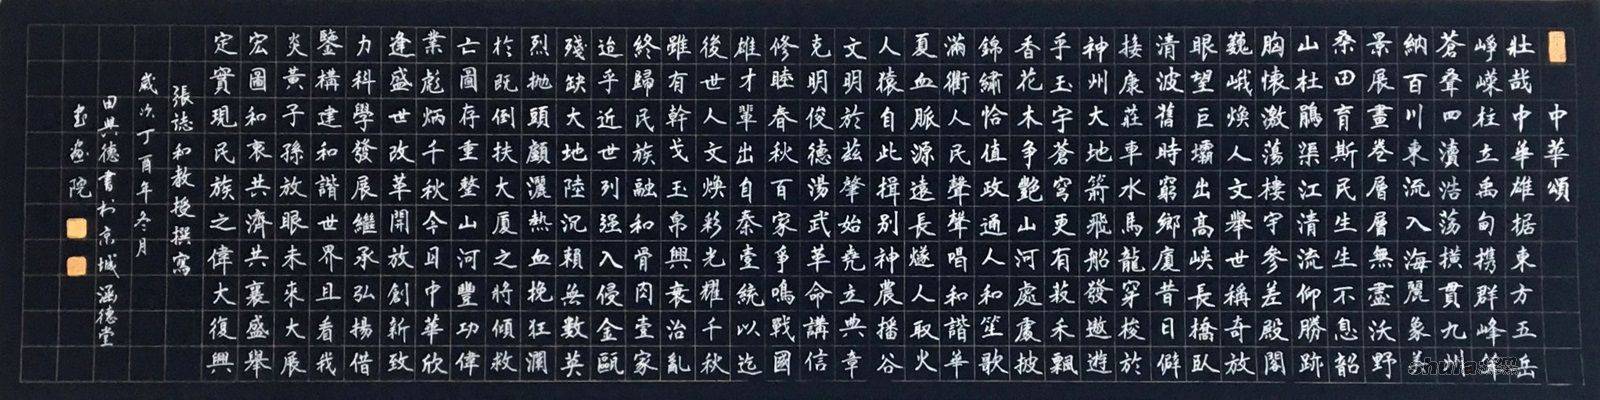 中華頌
壯哉中華雄据東方五岳
峥嵘柱立禹甸携群峰
蒼叠四瀆浩荡横貫九州
納百川東流入海麗象
景展畫卷層層無盡沃野
桑田育斯民生生不息韶
山杜鵑渠江清流仰勝跡
胸懷激蕩棲守參差殿閣
巍峨焕人文舉世稱奇放
眼望巨壩出高峡長橋臥
清波舊時窮鄉廈昔日僻
接康莊車水馬龍穿梭於
神州大地箭飛船發遨遊
乎玉宇蒼穹更有菽禾飄
香花木争艷山河處處披
錦繡恰值政通人和笙歌
滿衢人民聲聲唱和諧華
夏血脈源遠長燧人取火
人猿自此揖别神農播谷
文明於兹肇始堯立典章
克明俊德湯武革命講信
修睦春秋百家爭鳴戰國
雄才輩出自秦壹統以迄
後世人文焕彩光耀千秋
雖有幹戈玉帛興衰治亂
終歸民族融和骨肉壹家
迨乎近世列强入侵金甌
殘缺大地陸沉賴無數英
烈抛頭顱灑熱血挽狂瀾
於既倒扶大厦之將傾救
亡圖存重整山河豐功偉
業彪炳千秋今日中華欣
逢盛世改革開放創新致
力科學發展繼承弘揚借
鑒構建和諧世界且看我
炎黄子孫放眼未來大展
宏圖和衷共濟共襄盛舉
定實現民族之偉大復興
張誌和教授撰寫
歲次丁酉年冬月
田興德書於京城涵德堂
書畫院